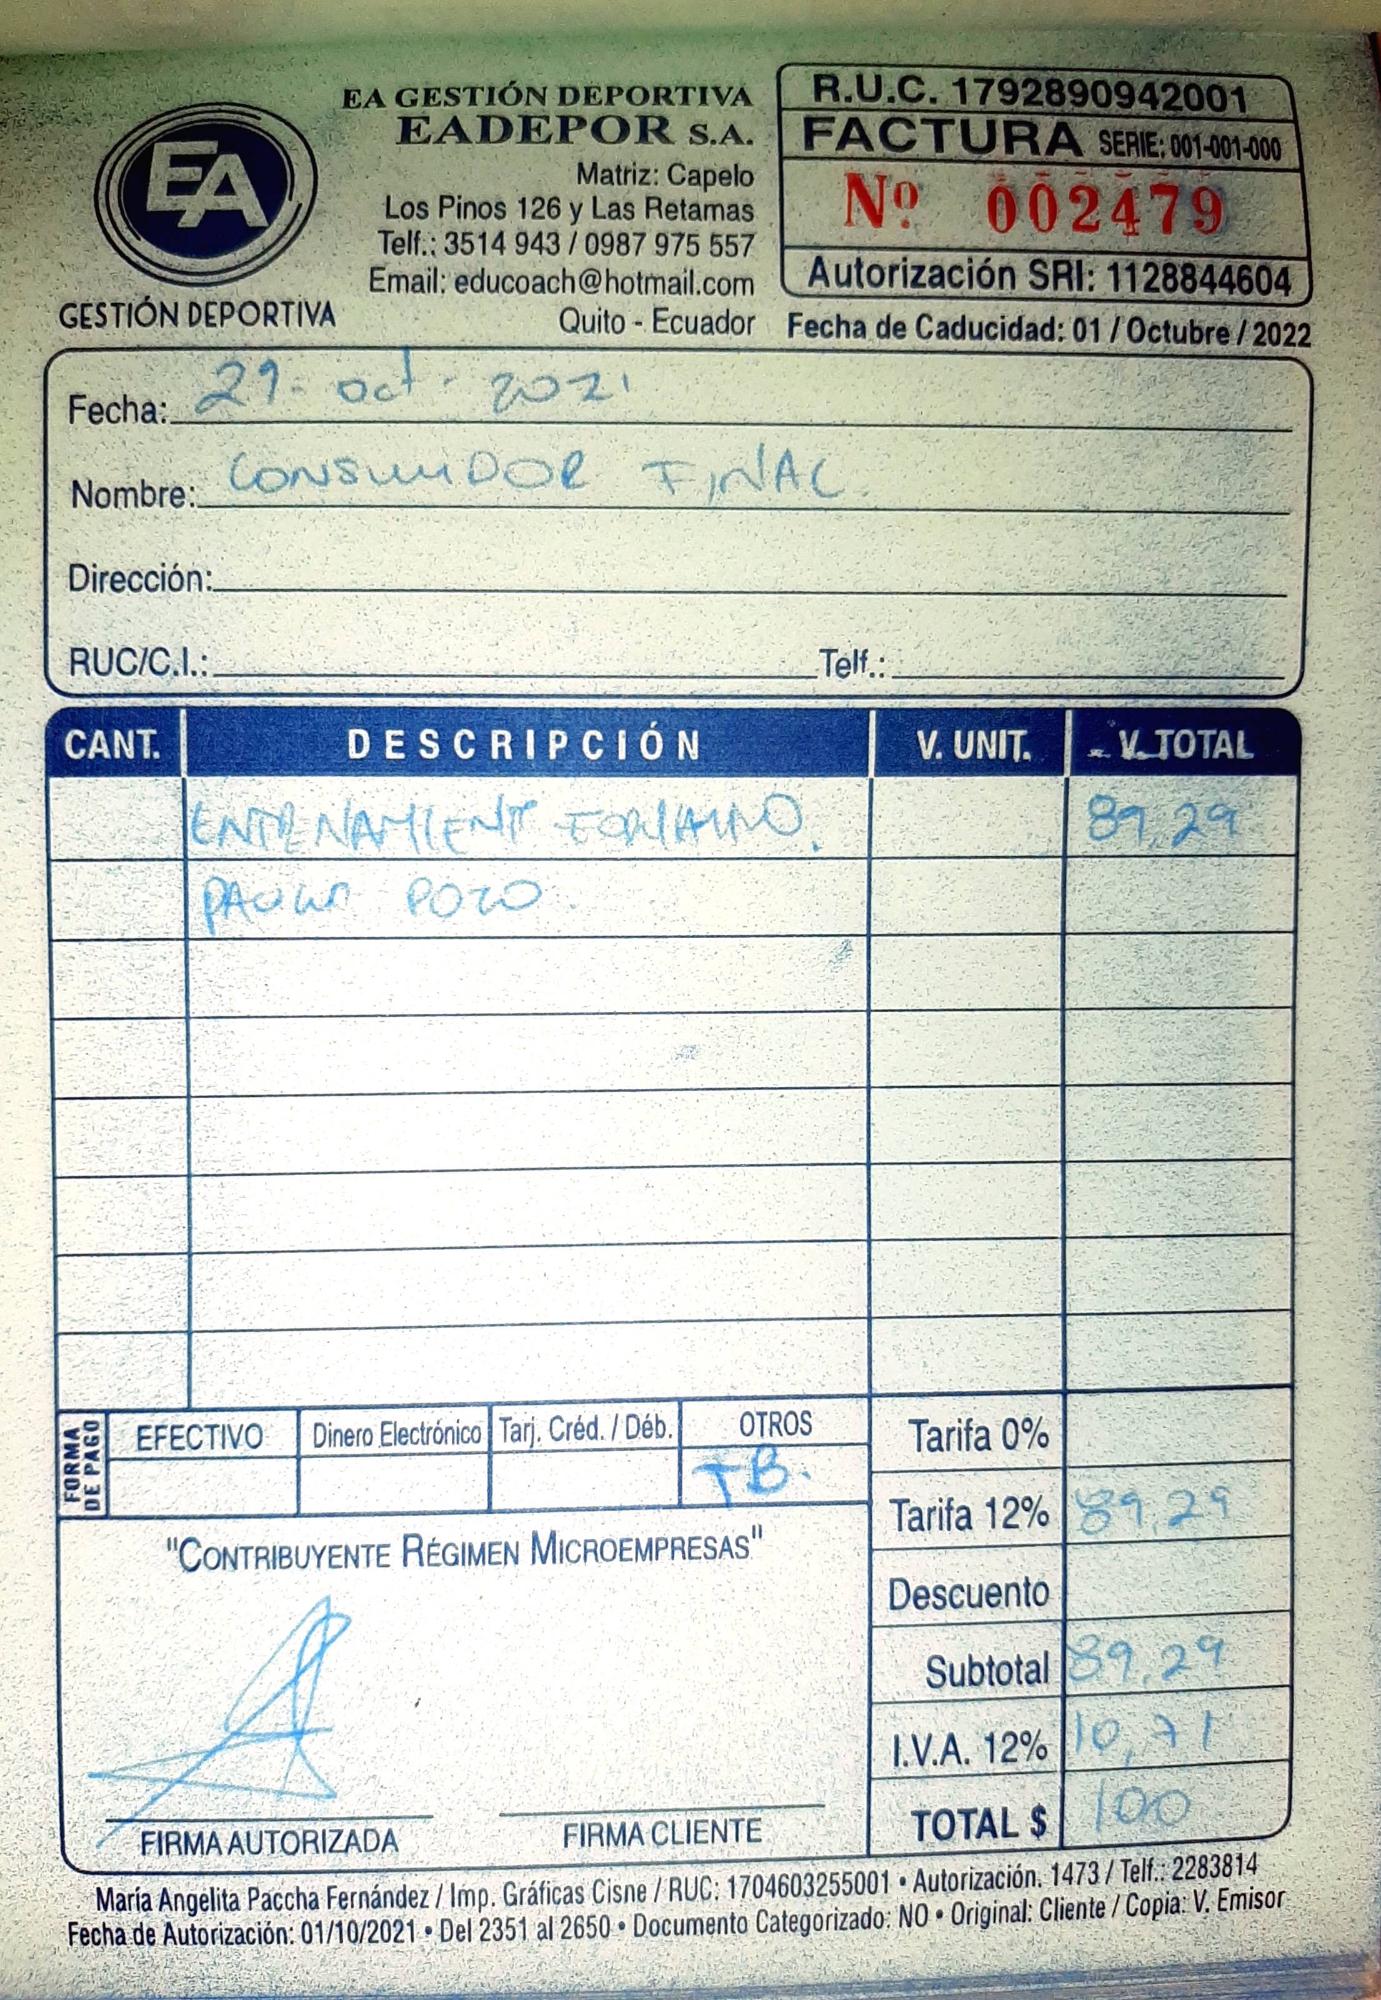 EA
GESTIÓN DEPORTIVA
EA GESTIÓN DEPORTIVA
EADEPOR S.A.
Matriz: Capelo
Los Pinos 126 y Las Retamas
Telf.: 3514 943 / 0987 975 557
Email: educoach@hotmail.com
Quito - Ecuador
R.U.C. 1792890942001
FACTURA SERIE: 001-001-000
Nº 002479
Autorización SRI: 1128844604
Fecha de Caducidad: 01 / Octubre / 2022
Fecha: 29 - oct - 2021
Nombre: CONSUMIDOR FINAL
Dirección:
RUC/C.I.: Telf.:
CANT. DESCRIPCIÓN V. UNIT. V. TOTAL
89,29
POZO
FORMA DE PAGO
EFECTIVO Dinero Electrónico Tarj. Créd. / Déb. OTROS
TB.
Tarifa 0%
Tarifa 12% 89,29
Descuento
Subtotal 89,29
I.V.A. 12% 10,71
TOTAL $ 100
"CONTRIBUYENTE RÉGIMEN MICROEMPRESAS"
FIRMA AUTORIZADA FIRMA CLIENTE
María Angelita Paccha Fernández / Imp. Gráficas Cisne / RUC: 1704603255001 • Autorización. 1473 / Telf.: 2283814
Fecha de Autorización: 01/10/2021 • Del 2351 al 2650 • Documento Categorizado: NO • Original: Cliente / Copia: V. Emisor